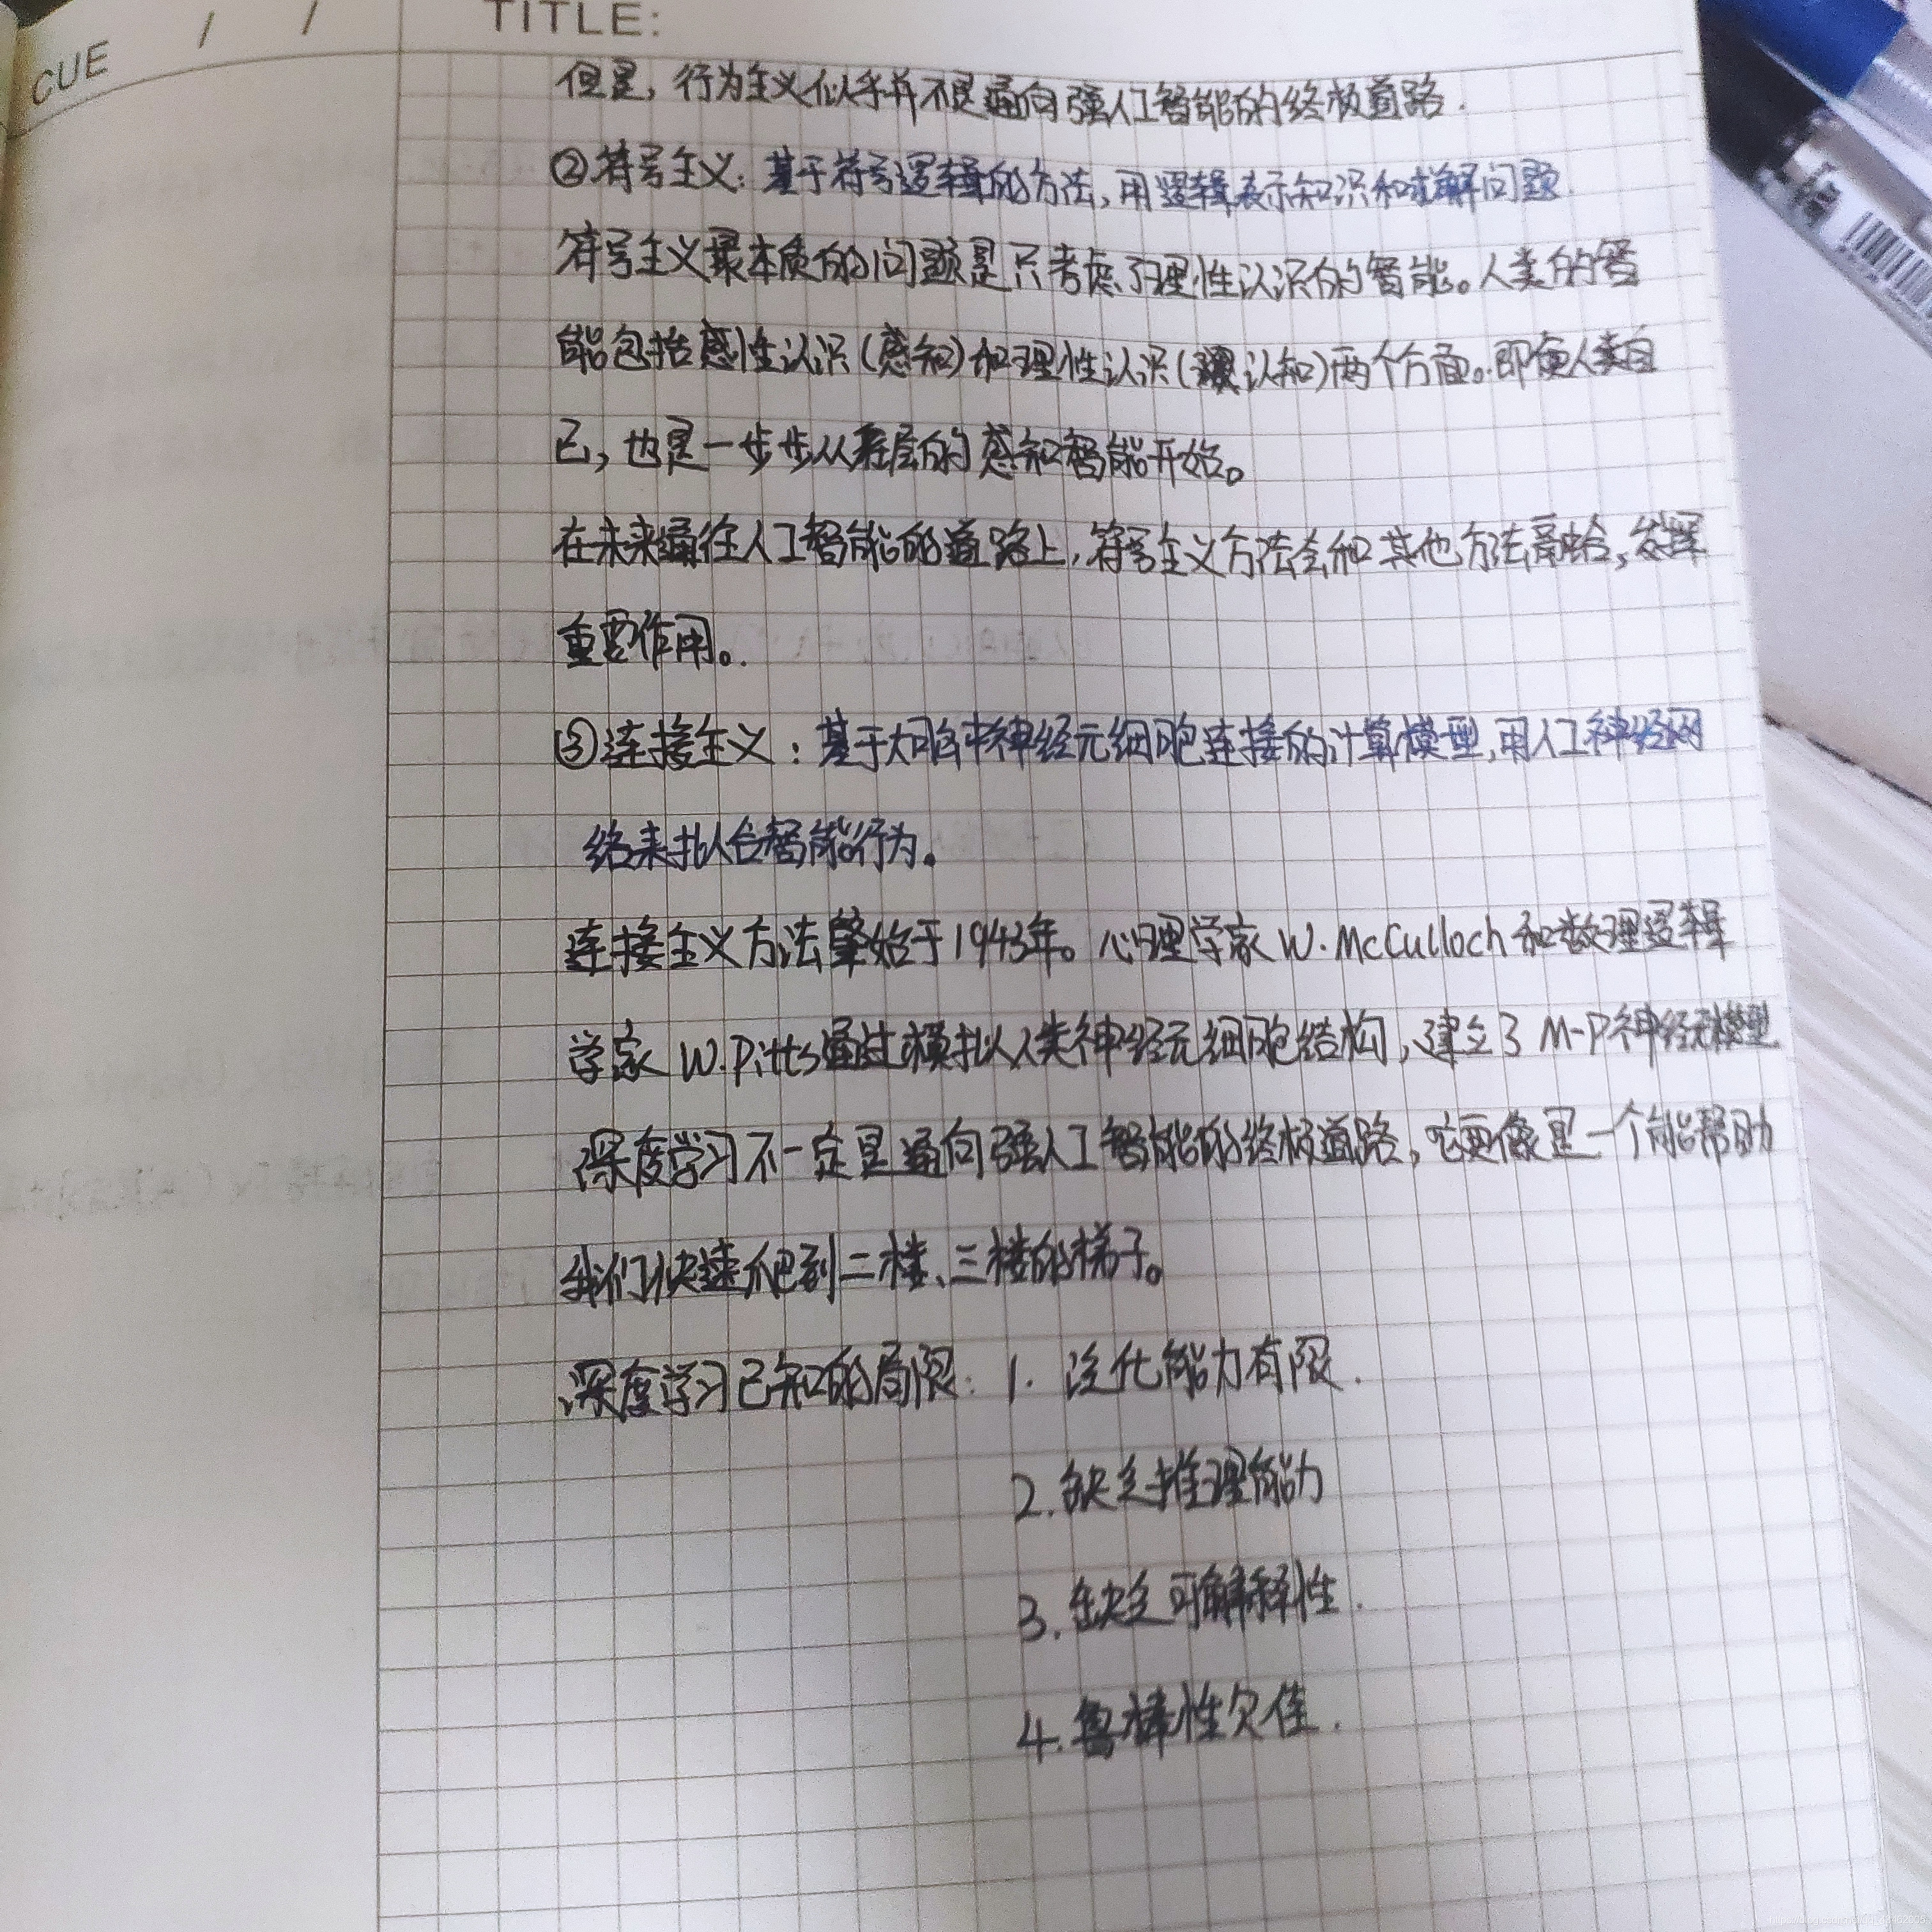 CUE / / TITLE:
但是，行为主义似乎并不是通向强人工智能的终极道路.
②符号主义：基于符号逻辑的方法，用逻辑表示知识和求解问题
符号主义最本质的问题是只考虑了理性认识的智能。人类的智
能包括感性认识(感知)和理性认识(认知)两个方面。即便人类自
己，也是一步步从底层的感知智能开始。
在未来通往人工智能的道路上，符号主义方法会和其他方法融合，发挥
重要作用。
③连接主义：基于大脑中神经元细胞连接的计算模型，用人工神经网
络来拟合智能行为。
连接主义方法肇始于1943年。心理学家W.McCulloch和数理逻辑
学家W.Pitts通过模拟人类神经元细胞结构，建立了M-P神经元模型
深度学习不一定是通向强人工智能的终极道路，它更像是一个能帮助
我们快速爬到二楼、三楼的梯子。
深度学习已知的局限：1.泛化能力有限.
2.缺乏推理能力
3.缺乏可解释性.
4.鲁棒性欠佳.